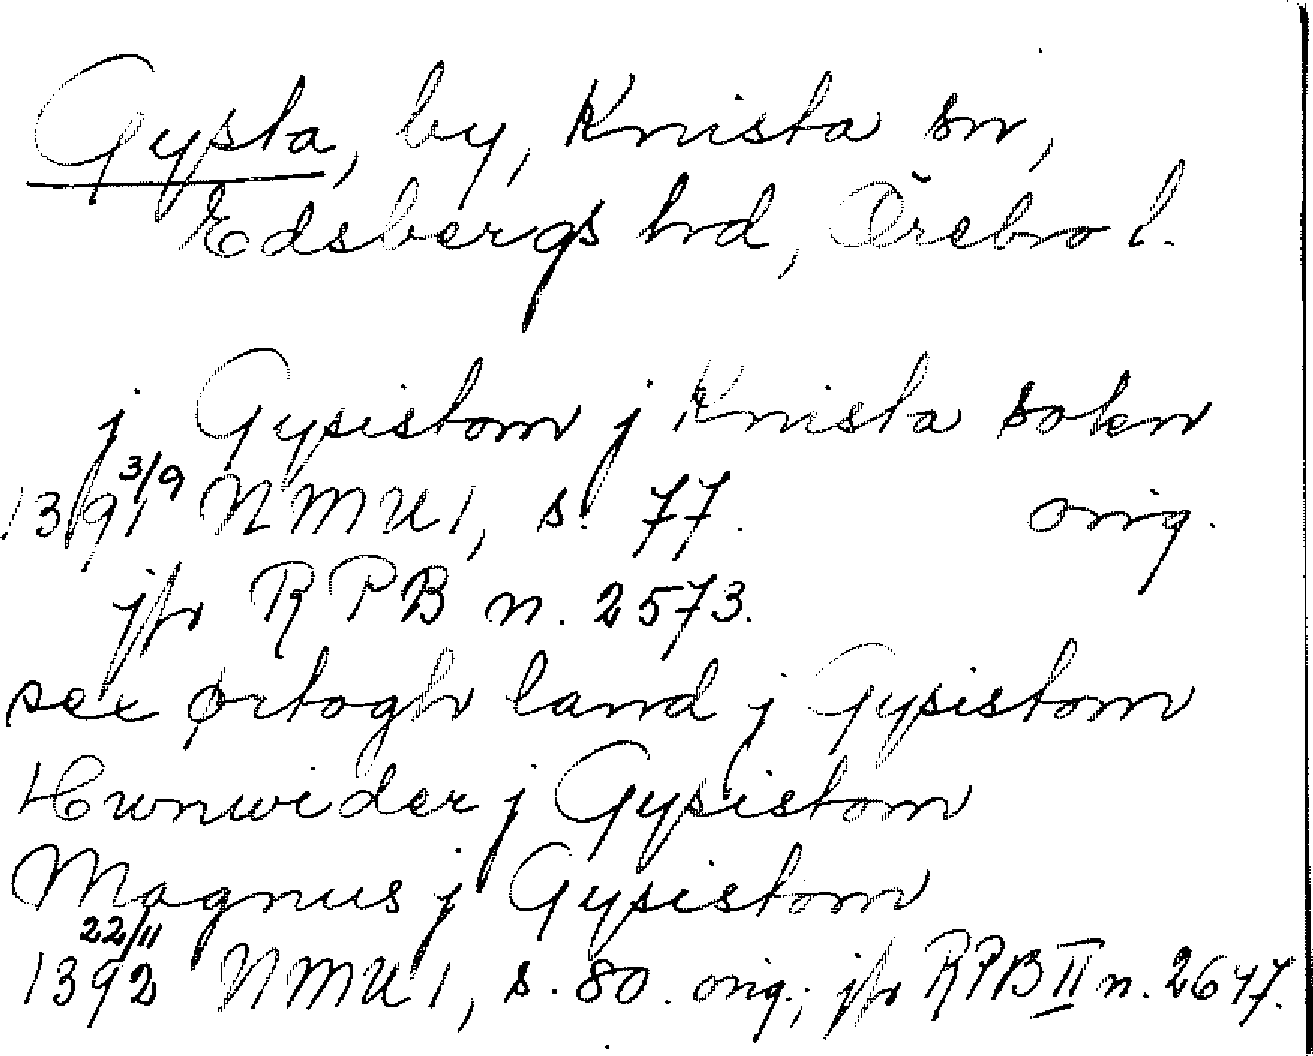 Gysta, by, Knista sn,
Edsbergs hrd, Örebro l.
j Gysistom j Knista sokn
1391 3/9 NMU 1, s. 77. orig.
jfr RPB n. 2573.
sex ørtogh land j Gysistom
Hwnwider j Gysistom
Magnus j Gysistom
1392 22/11 NMU 1, s. 80. orig.; jfr RPB II n. 2647.